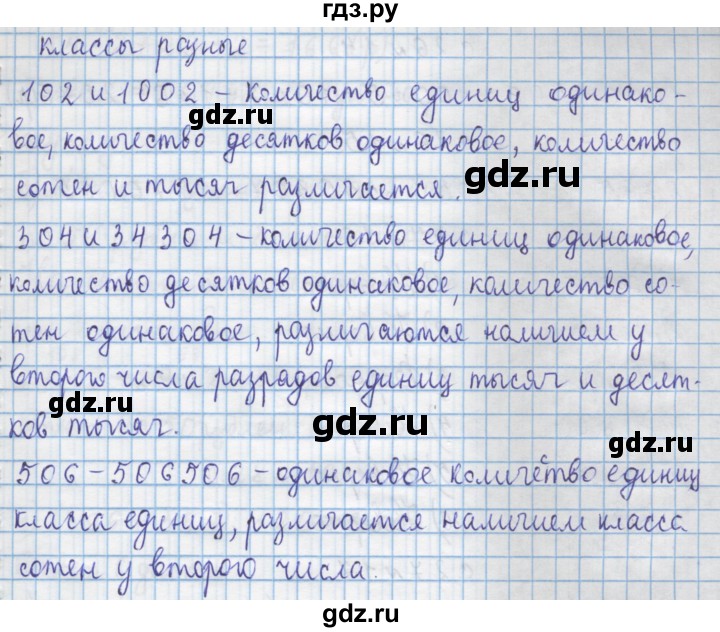 гдз.ру
классы разные
102 и 1002 – количество единиц одинако-
gdz.ru
вое, количество десятков одинаковое, количество
сотен и тысяч различается.
gdz.ru
304 и 34304 – количество единиц одинаковое,
количество десятков одинаковое, количество со-
тен одинаковое, различаются наличием у
второго числа разрядов единиц тысяч и десят-
gdz.ru
ков тысяч.
gdz.ru
gdz.ru
506 – 506506 – одинаковое количетво единиц
класса единиц, различается наличием класса
сотен у второго числа.
gdz.ru
gdz.ru